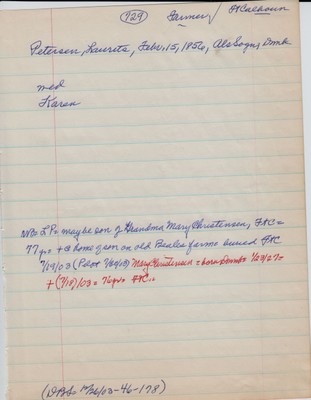 729 Farmer / Calhoun
Petersen, Laurits, Febr. 15, 1856, Als Sogn, Dmk
med
Karen
NB: L P. may be son of Grandma Mary Christensen, FAC =
77 yrs + @ home of son on old Beales farm buried FAC
7/19/03 (Pilot 7/22/03) Mary Christensen = born Denmk 1/23/27
+ (7/18)/03 = 76 yrs FAC.
(DAS: 46-178)